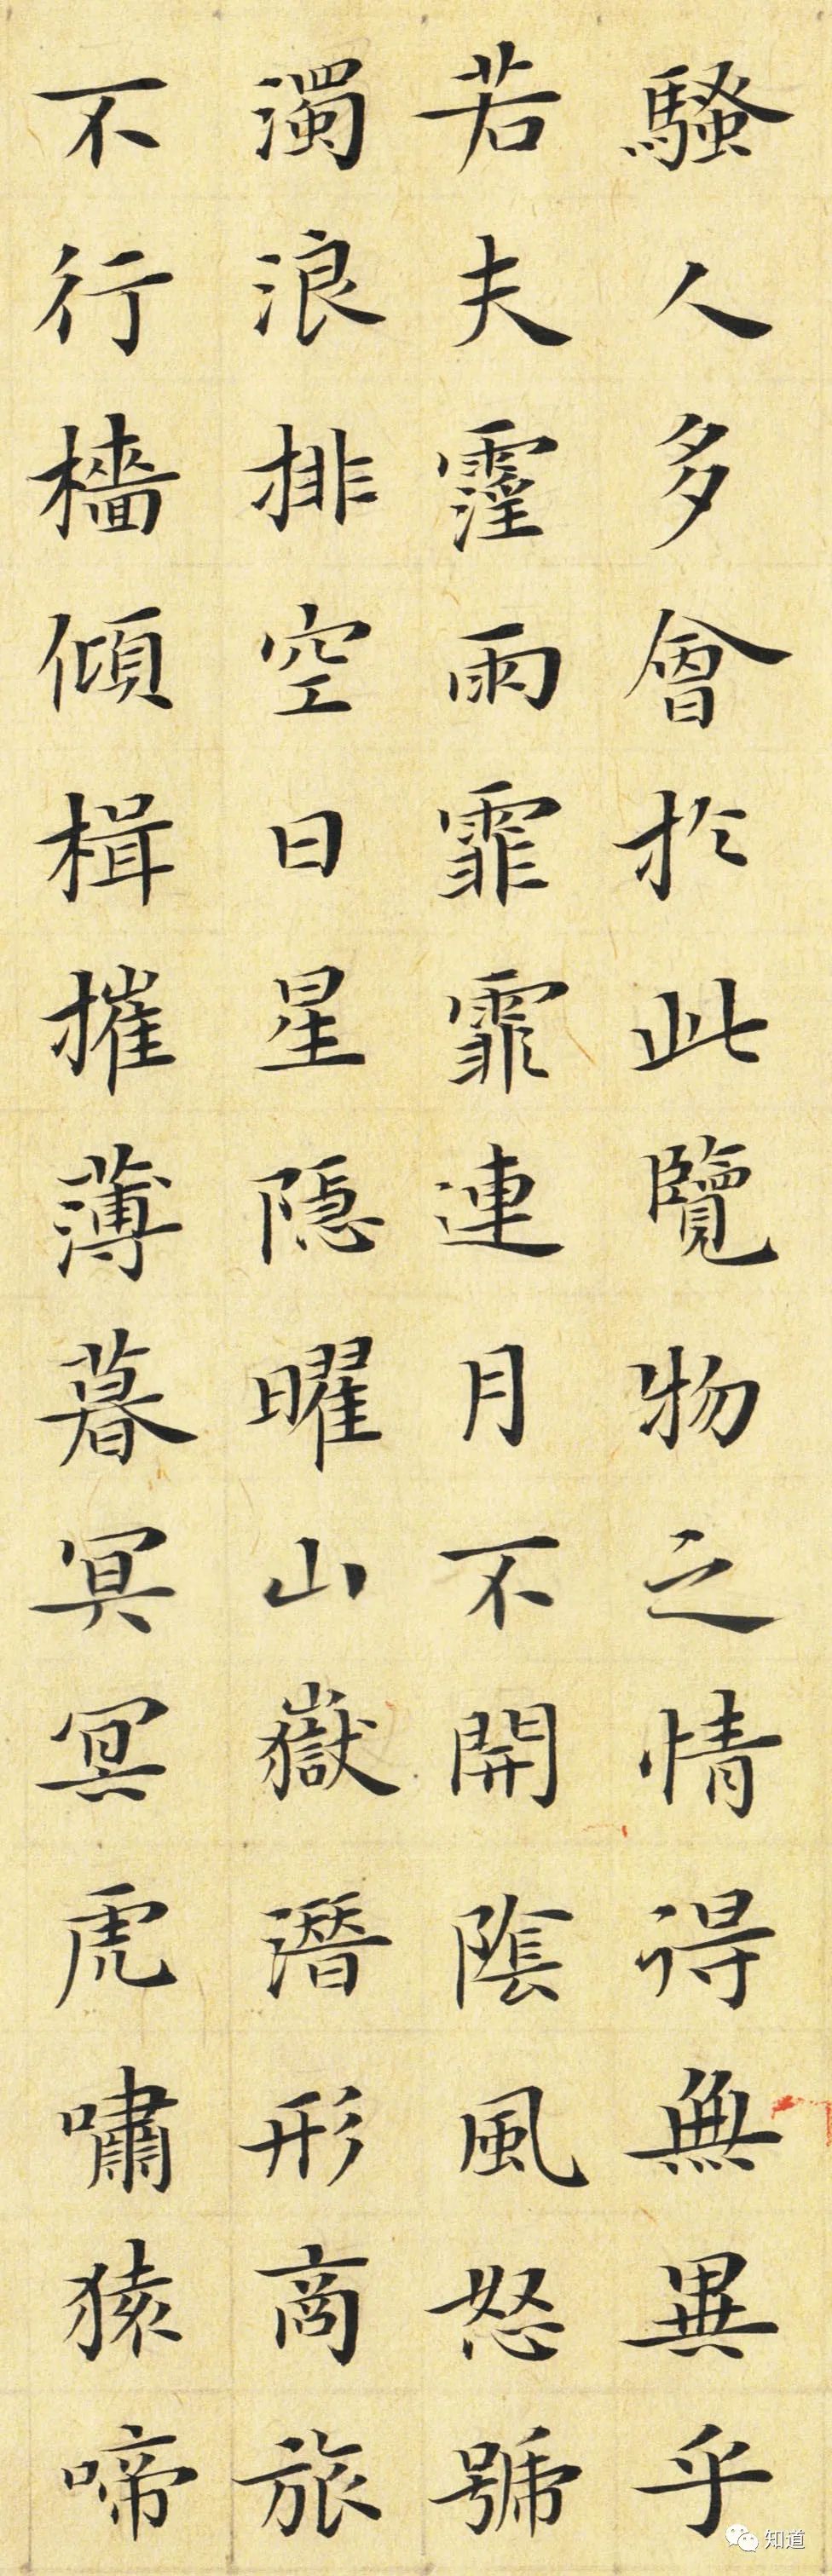 騷人多會於此覽物之情得無異乎
若夫霪雨霏霏連月不開陰風怒號
濁浪排空日星隱曜山嶽潛形商旅
不行檣傾楫摧薄暮冥冥虎嘯猿啼
知道